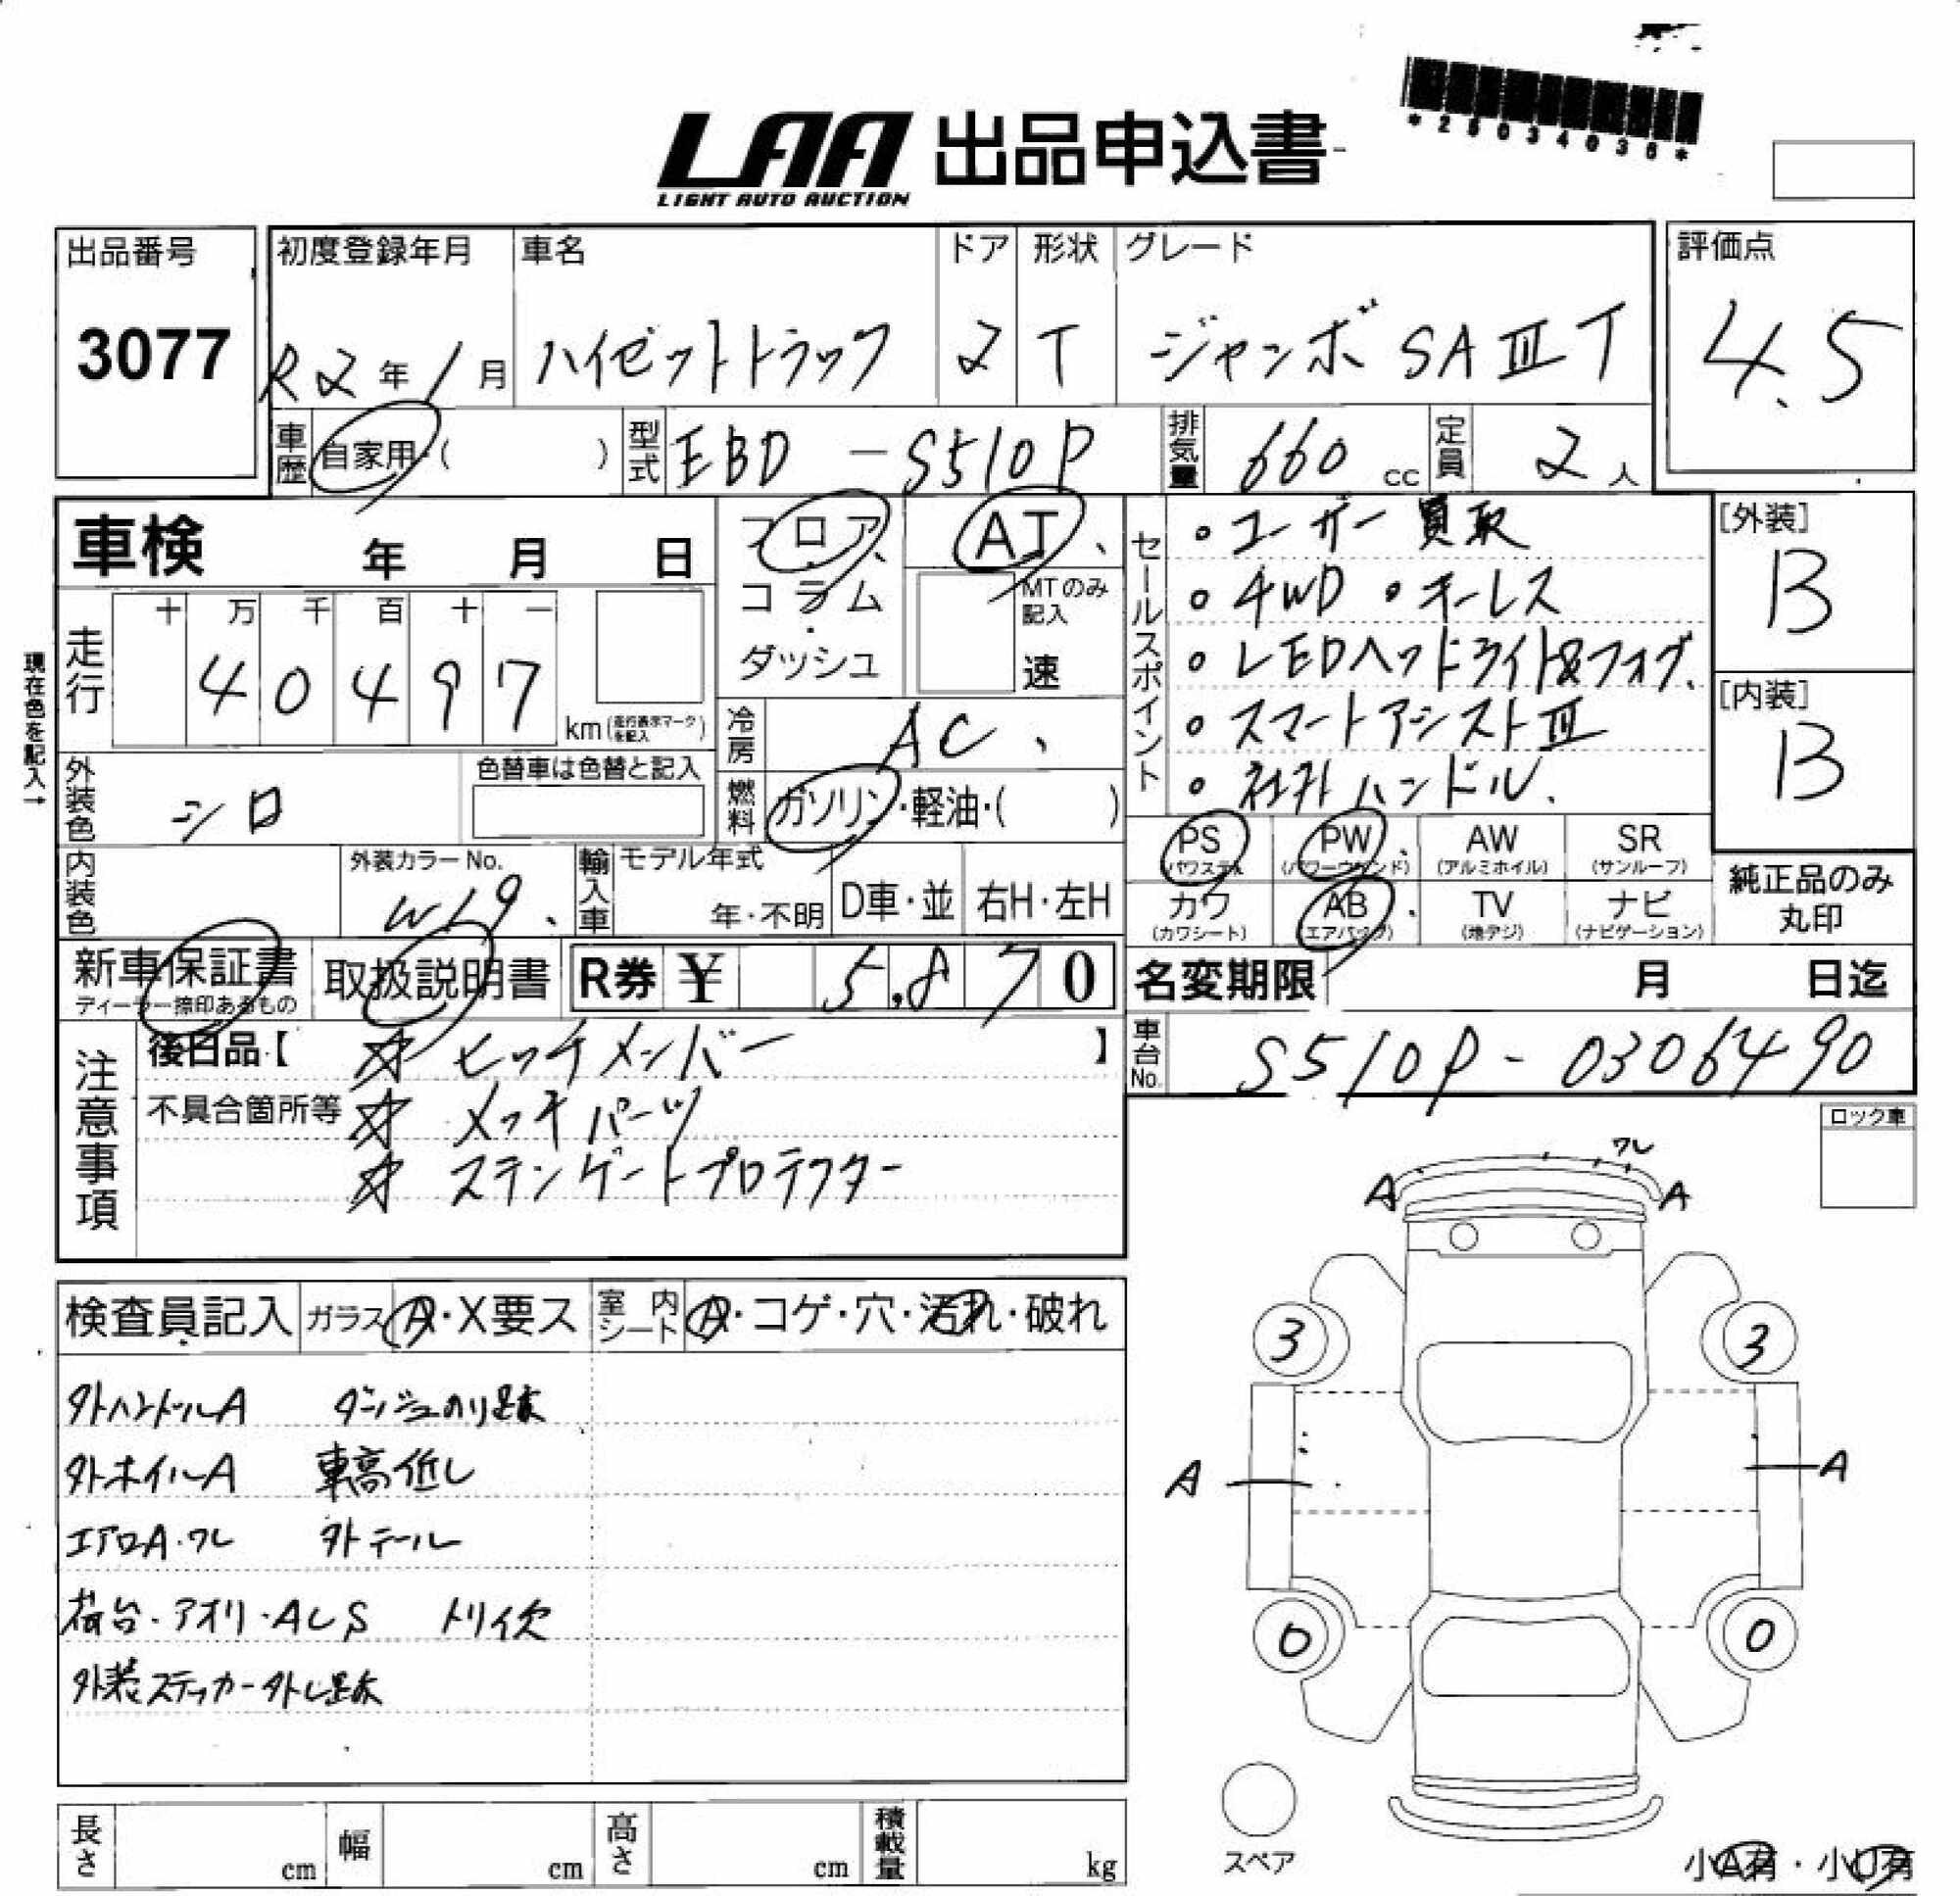 *25034036*
LAA 出品申込書
LIGHT AUTO AUCTION
出品番号
3077
初度登録年月
R2年1月
車名
ハイゼットトラック
ドア
2
形状
T
グレード
ジャンボ SAⅢT
評価点
4.5
車歴 自家用・( )
型式 EBD -S510P
排気量 660 cc
定員 2 人
車検 年 月 日
フロア
コラム
・
ダッシュ
AT
MTのみ記入
速
セールスポイント
・ユーザー買取
・4WD ・キーレス
・LEDヘッドライト&フォグ
・スマートアシストⅢ
・社外ハンドル
[外装]
B
[内装]
B
現在色を記入→
走行
十 万 千 百 十 一
4 0 4 9 7
km(走行表示マークを記入)
冷房 AC
外装色 シロ
色替車は色替と記入
燃料 ガソリン・軽油・( )
内装色
外装カラーNo.
W19
輸入車
モデル年式
年・不明
D車・並
右H・左H
PS (パワステ)
PW (パワーウィンド)
AW (アルミホイル)
SR (サンルーフ)
カワ (カワシート)
AB (エアバック)
TV (地デジ)
ナビ (ナビゲーション)
純正品のみ
丸印
新車保証書
ディーラー捺印あるもの
取扱説明書
R券 ¥ 5,870
名変期限 月 日迄
注意事項
後日品【 ☆ ヒッチメンバー 】
不具合箇所等 ☆ メッキパーツ
☆ ステンゲートプロテクター
車台No. S510P-0306490
ロック車
検査員記入
ガラス A・X要ス
室内シート A・コゲ・穴・汚れ・破れ
外ハンドルA ダッシュのり跡
外ホイルA 車高低し
エアロA・ワレ 外テール
荷台・アオリ・AUS トリイ欠
外装ステッカー外し跡
ワレ
A A
3 3
A A
0 0
スペア
長さ cm
幅 cm
高さ cm
積載量 kg
小A有・小U有